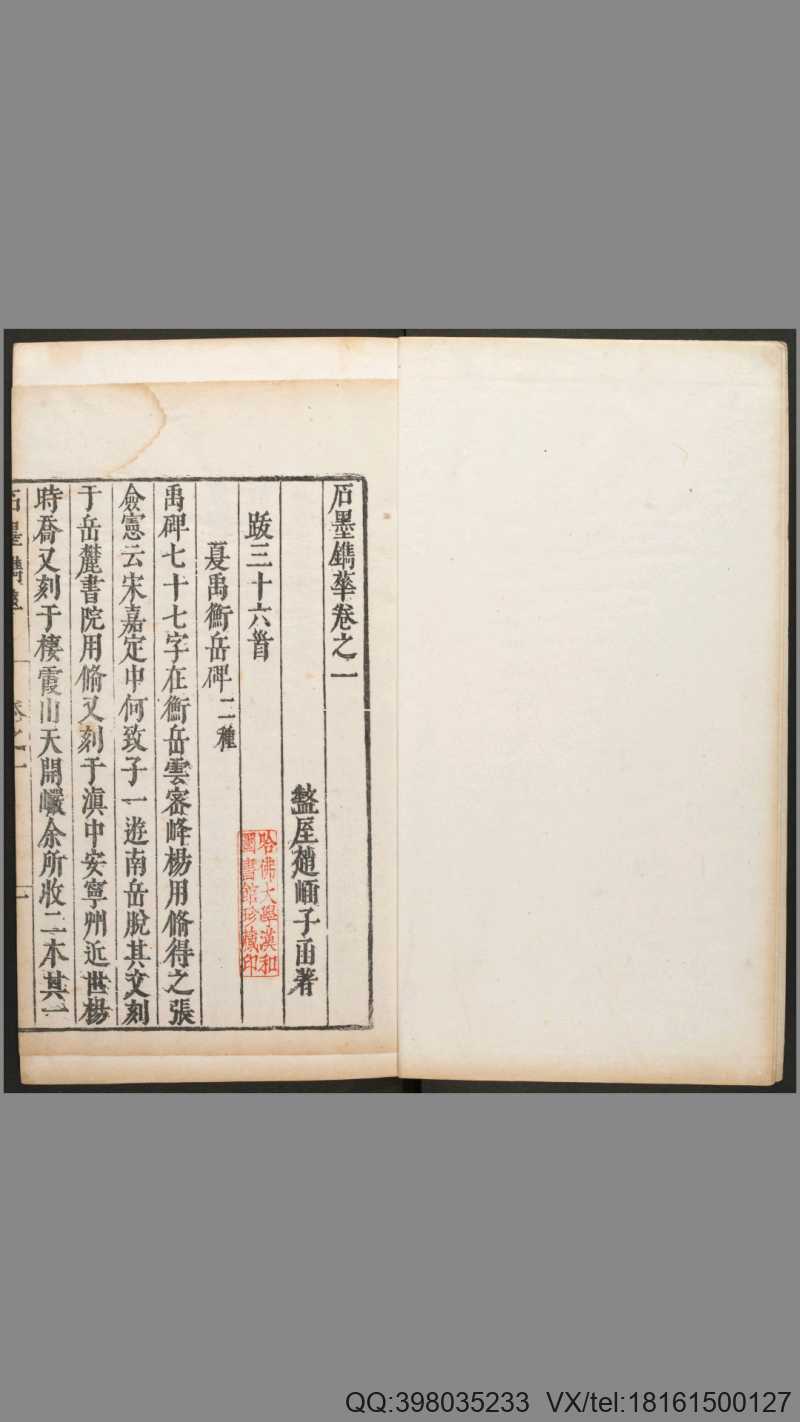 石墨鐫華卷之一
盩厔趙崡子函著
跋三十六首
夏禹衡岳碑二種
禹碑七十七字在衡岳雲密峰楊用脩得之張
僉憲云宋嘉定中何致子一遊南岳脫其文刻
于岳麓書院用脩又刻于滇中安寧州近世楊
時喬又刻于棲霞山天開巖余所收二本其一
石墨鐫華 卷之一 一
哈佛大學漢和
圖書館珍藏印
QQ:398035233 VX/tel:18161500127